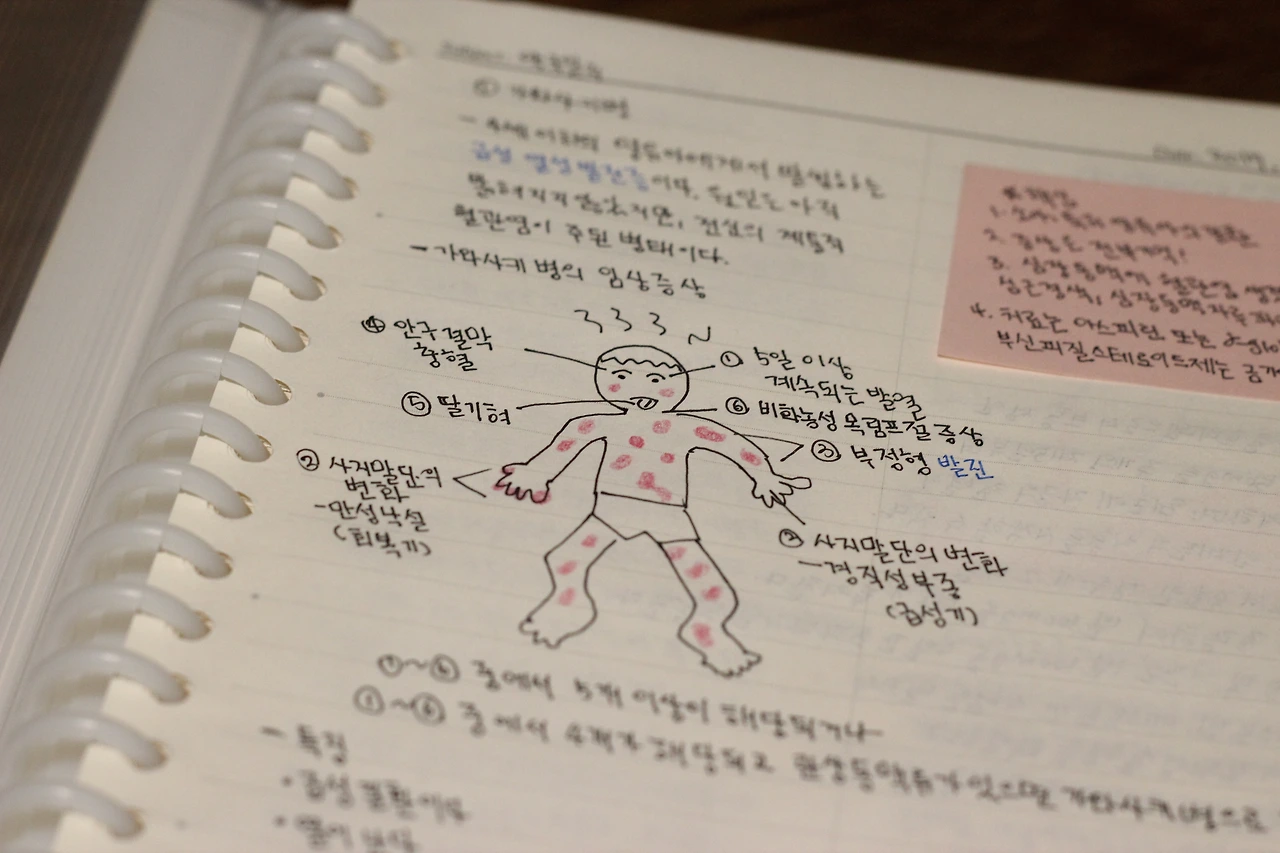 ① 가와사키병
- 4세 이하의 영유아에게서 발생하는
급성 열성 발진증이다. 원인은 아직
밝혀지지 않았지만, 전신의 계통적
혈관염이 주된 병태이다.
- 가와사키 병의 임상증상
④ 안구결막
충혈
① 5일 이상
계속되는 발열
⑤ 딸기혀
⑥ 비화농성 목림프절 증상
③ 부정형 발진
② 사지말단의
변화
- 만성낙설
(회복기)
② 사지말단의 변화
- 경직성부종
(급성기)
①~⑥ 중에서 5개 이상이 해당되거나
①~⑥ 중에서 4개가 해당되고 관상동맥류가 있으면 가와사키병으로
- 특징
• 급성
•
1.
2. 강남도
3. 심장동맥에 혈관염
심근경색, 심장동맥
4. 치료는 아스피린 또는
부신피질스테로이드제는 금기